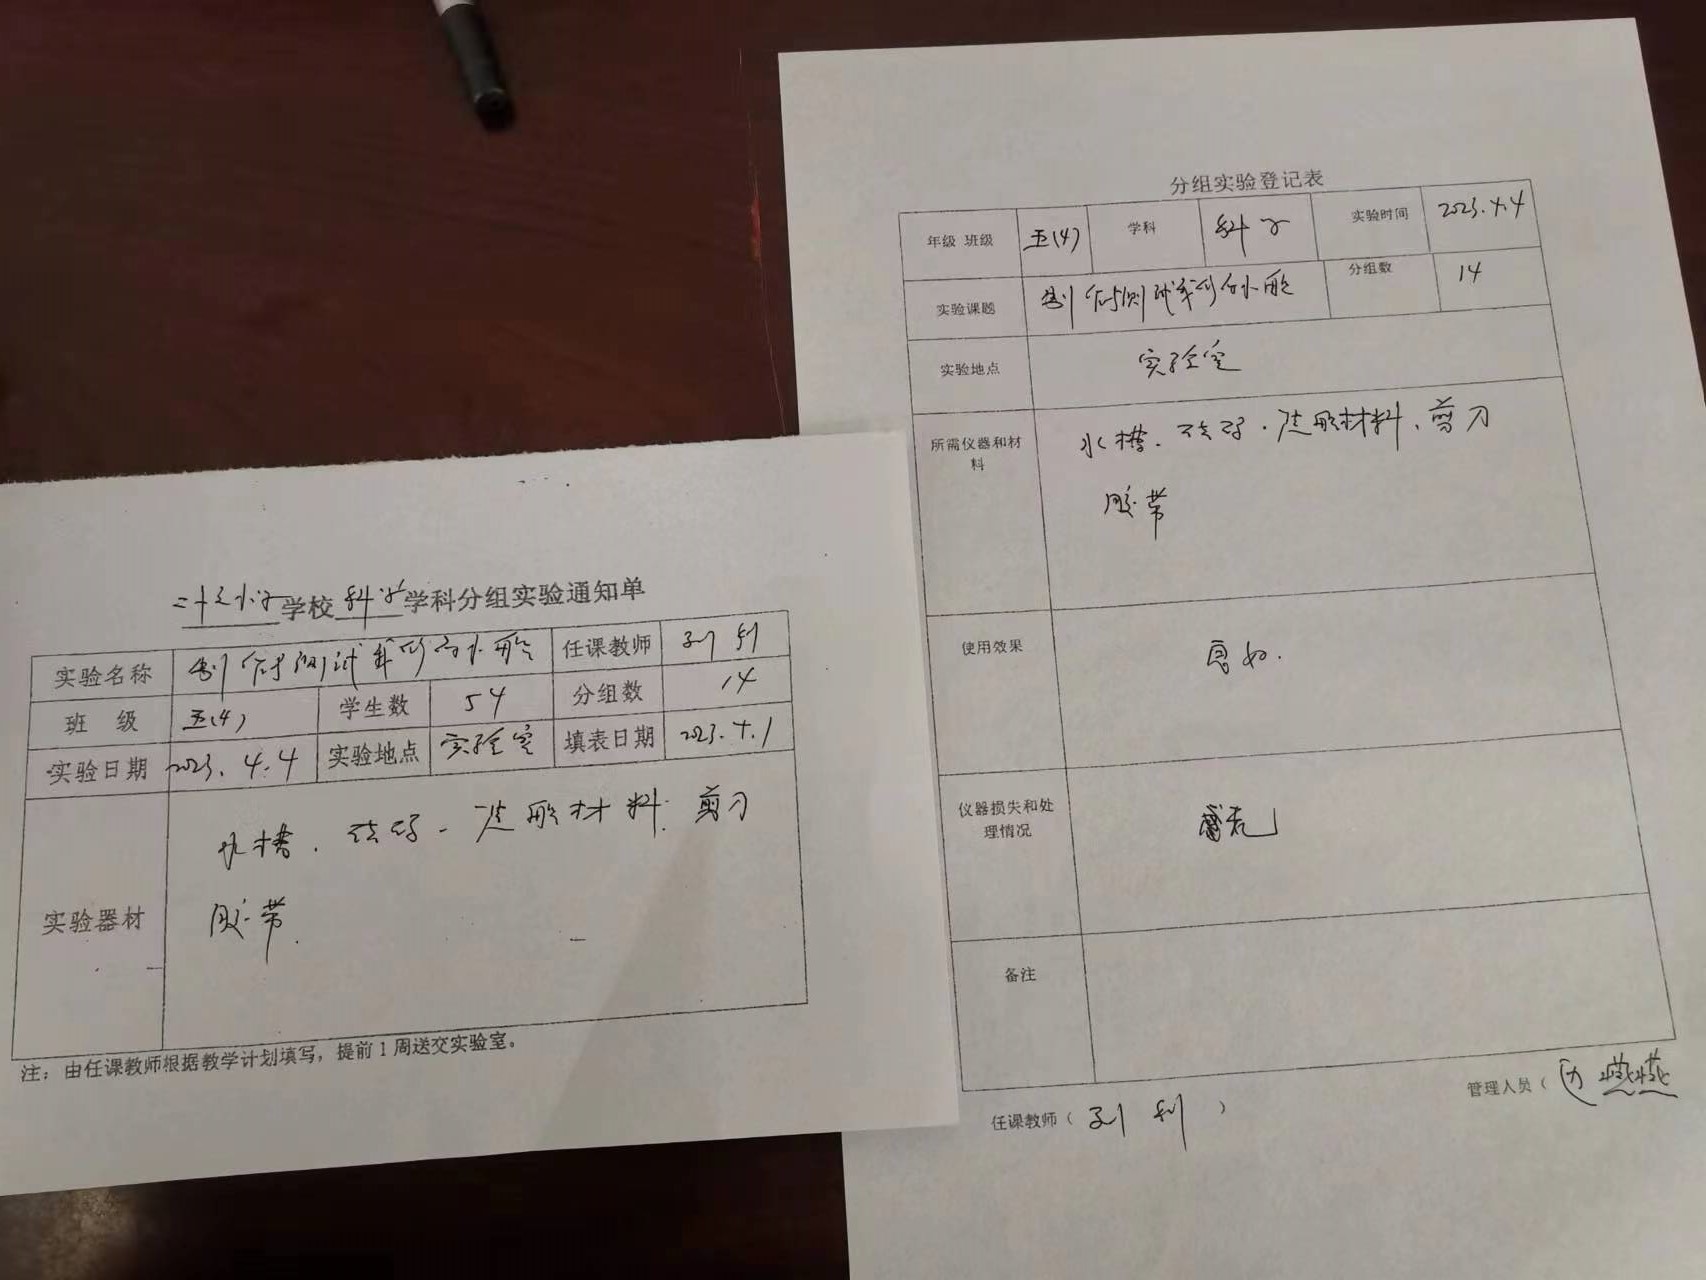 学校科学学科分组实验通知单
实验名称 制作与测试我们的小船 任课教师 刘利
班 级 五(4) 学生数 54 分组数 14
实验日期 2023.4.4 实验地点 实验室 填表日期 2023.4.1
实验器材 水槽、砝码、造船材料、剪刀
胶带
注：由任课教师根据教学计划填写，提前1周送交实验室。
分组实验登记表
年级 班级 五(4) 学科 科学 实验时间 2023.4.4
实验课题 制作与测试我们的小船 分组数 14
实验地点 实验室
所需仪器和材料 水槽、砝码、造船材料、剪刀
胶带
使用效果 良好.
仪器损失和处理情况 无
备注
任课教师（刘利）
管理人员（ 燕燕